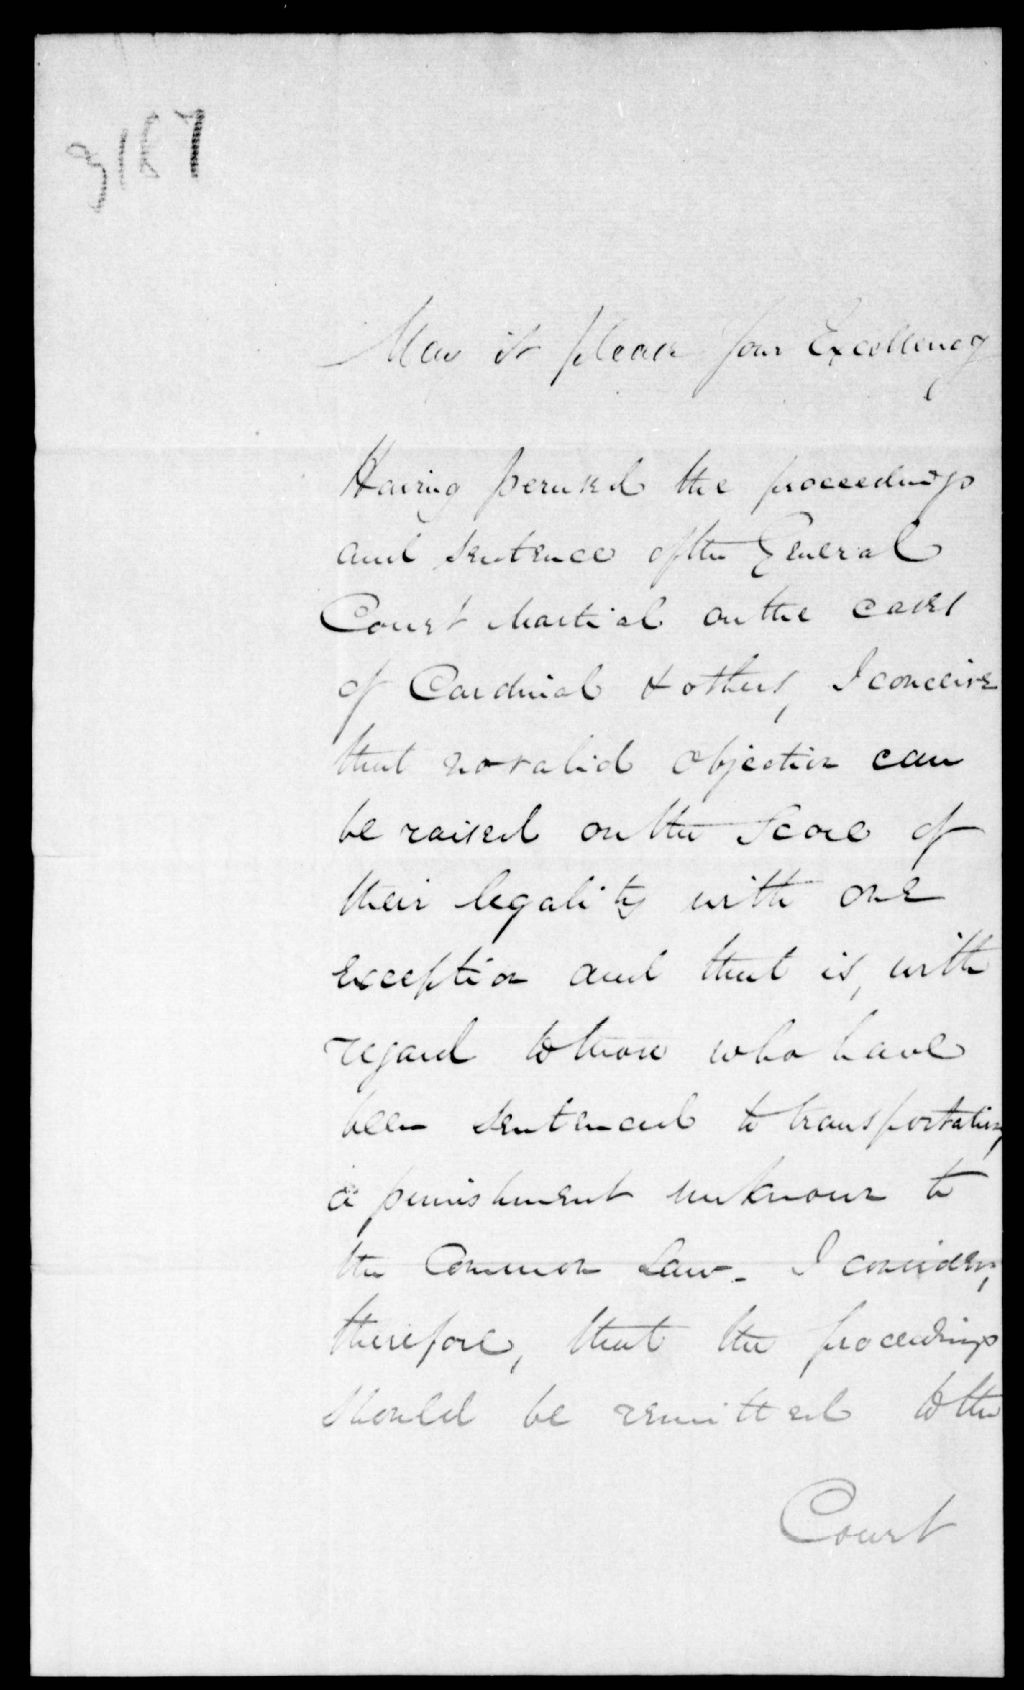 3187
May it please your Excellency
Having perused the proceedings
and sentence of the General
Court Martial on the cases
of Cardinal & others, I conceive
that no valid objection can
be raised on the score of
their legality with one
exception and that is, with
regard to those who have
been sentenced to transportation,
a punishment unknown to
the Common Law. I consider,
therefore, that the proceedings
should be remitted to the
Court